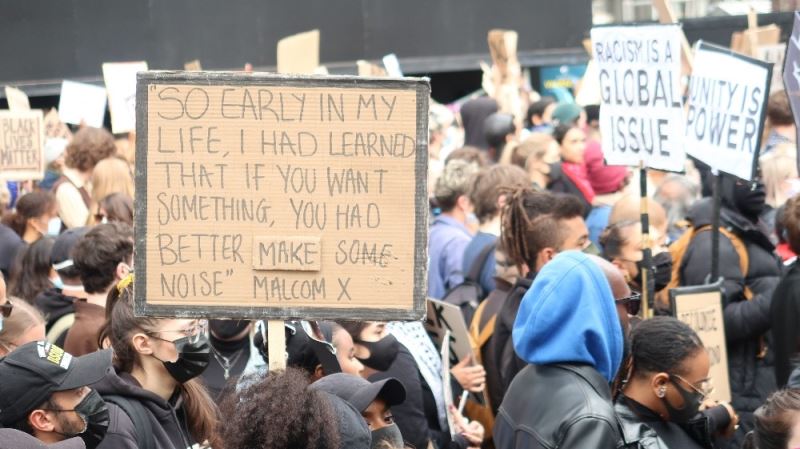 "SO EARLY IN MY
LIFE, I HAD LEARNED
THAT IF YOU WANT
SOMETHING, YOU HAD
BETTER MAKE SOME-
NOISE" MALCOM X
RACISM IS A
GLOBAL
ISSUE
UNITY IS
POWER
BLACK
LIVES
MATTER